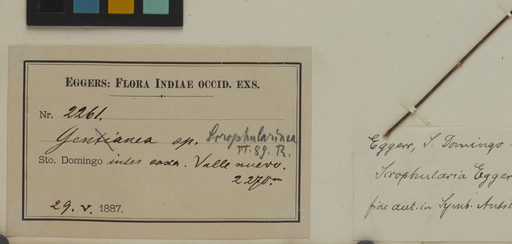 EGGERS: FLORA INDIAE OCCID. EXS.
Nr. 2261.
Gentianea sp. Scrophularinea
VI. 89. R.
Sto. Domingo inter saxa. Valle nuevo.
2270 m
29. V. 1887.
Eggers, S. Domingo
Scrophularia Egger
fide aut. in Symb. Antil